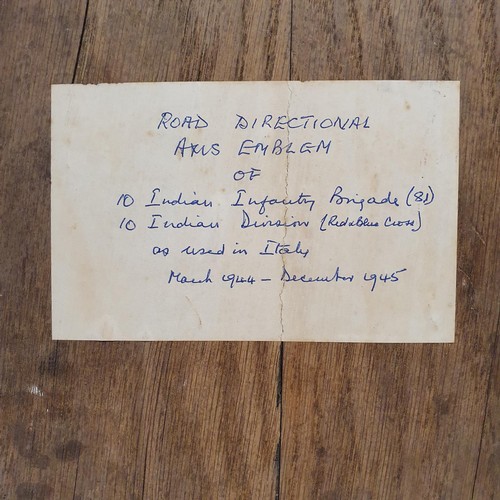 ROAD DIRECTIONAL
AXIS EMBLEM
OF
10 Indian Infantry Brigade (81)
10 Indian Division (Red & Blue Cross)
as used in Italy
March 1944 - December 1945